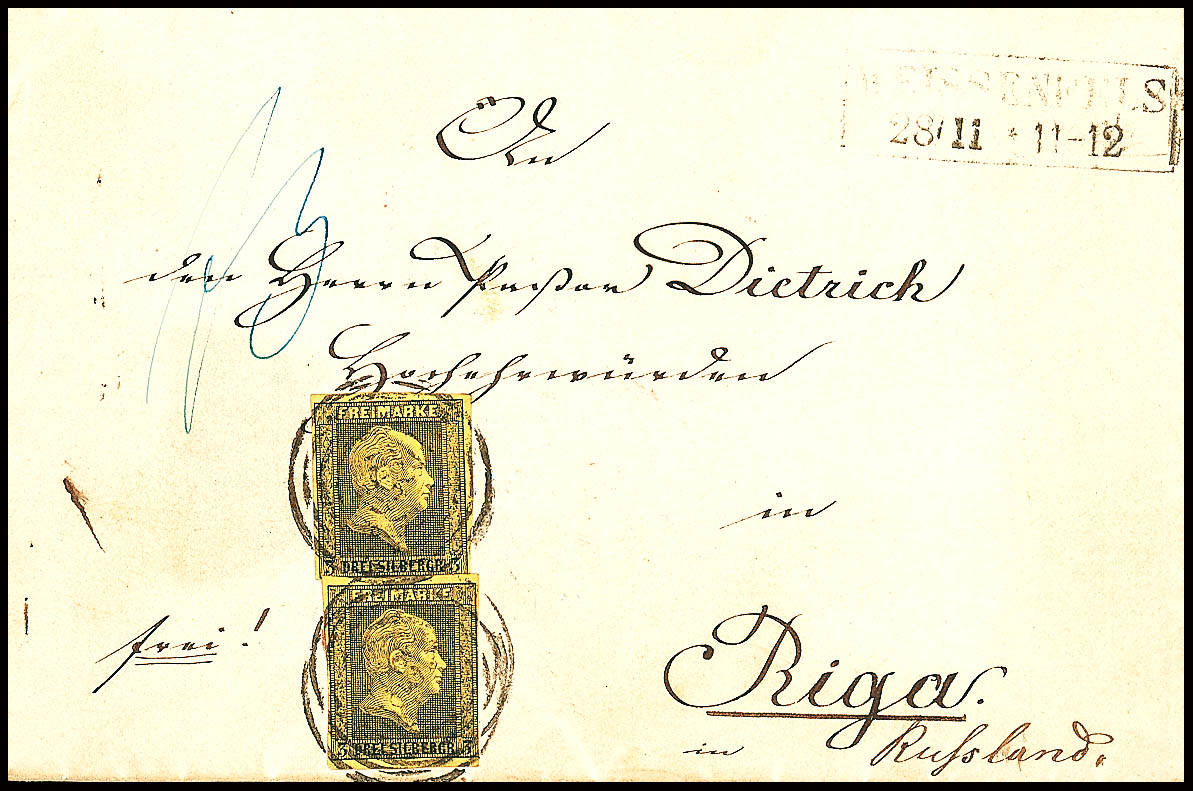 WEISSENFELS
28/11 * 11-12
An
den Herrn Pastor Dietrich
Hochehrwürden
FREIMARKE
3 DREI SILBERGR. 3
in
FREIMARKE
3 DREI SILBERGR. 3
frei!
Riga.
in Russland.